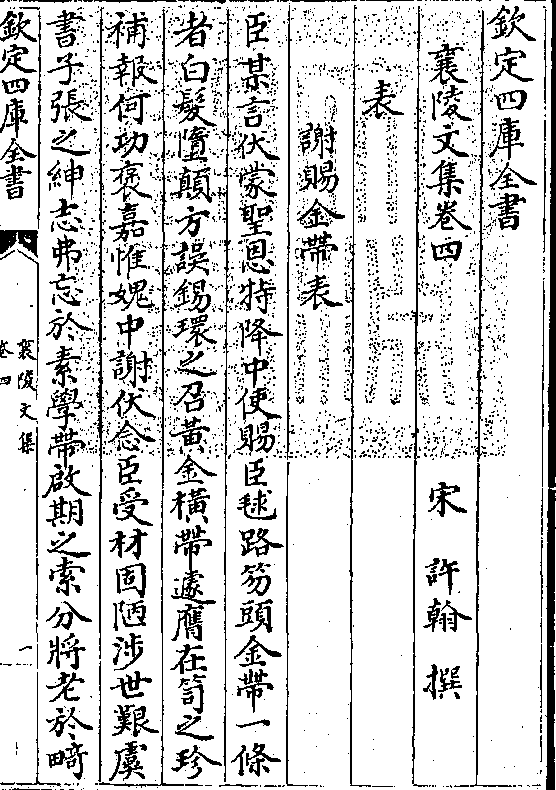 欽定四庫全書
襄陵文集卷四
宋 許翰 撰
表
謝賜金帶表
臣某言伏蒙聖恩特降中使賜臣毬路笏頭金帶一條
者白髮墮顛方誤錫環之召黃金橫帶遽膺在笥之珍
補報何功褒嘉惟媿中謝伏念臣受材固陋涉世艱虞
書子張之紳志弗忘於素學帶啟期之索分將老於畸
欽定四庫全書
襄陵文集
卷四
一